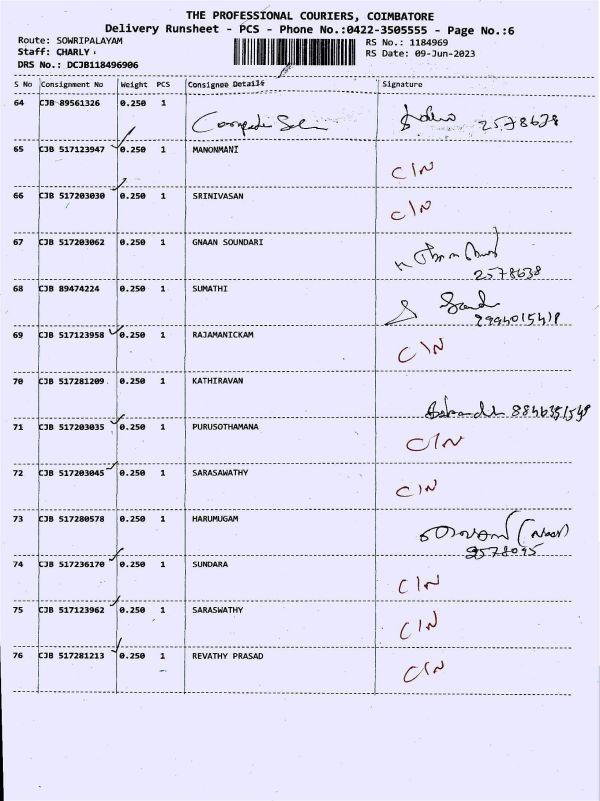 THE PROFESSIONAL COURIERS, COIMBATORE
Delivery Runsheet - PCS - Phone No.:0422-3505555 - Page No.:6
Route: SOWRIPALAYAM RS No.: 1184969
Staff: CHARLY RS Date: 09-Jun-2023
DRS No.: DCJB118496906
S No Consignment No Weight PCS Consignee Details Signature
64 CJB 89561326 0.250 1 2578638
65 CJB 517123947 0.250 1 MANONMANI C/N
66 CJB 517203030 0.250 1 SRINIVASAN C/N
67 CJB 517203062 0.250 1 GNAAN SOUNDARI
2578638
68 CJB 89474224 0.250 1 SUMATHI
69 CJB 517123958 0.250 1 RAJAMANICKAM C/N
70 CJB 517281209 0.250 1 KATHIRAVAN
71 CJB 517203035 0.250 1 PURUSOTHAMANA C/N
72 CJB 517203045 0.250 1 SARASAWATHY C/N
73 CJB 517280578 0.250 1 HARUMUGAM
74 CJB 517236170 0.250 1 SUNDARA C/N
75 CJB 517123962 0.250 1 SARASWATHY C/N
76 CJB 517281213 0.250 1 REVATHY PRASAD C/N